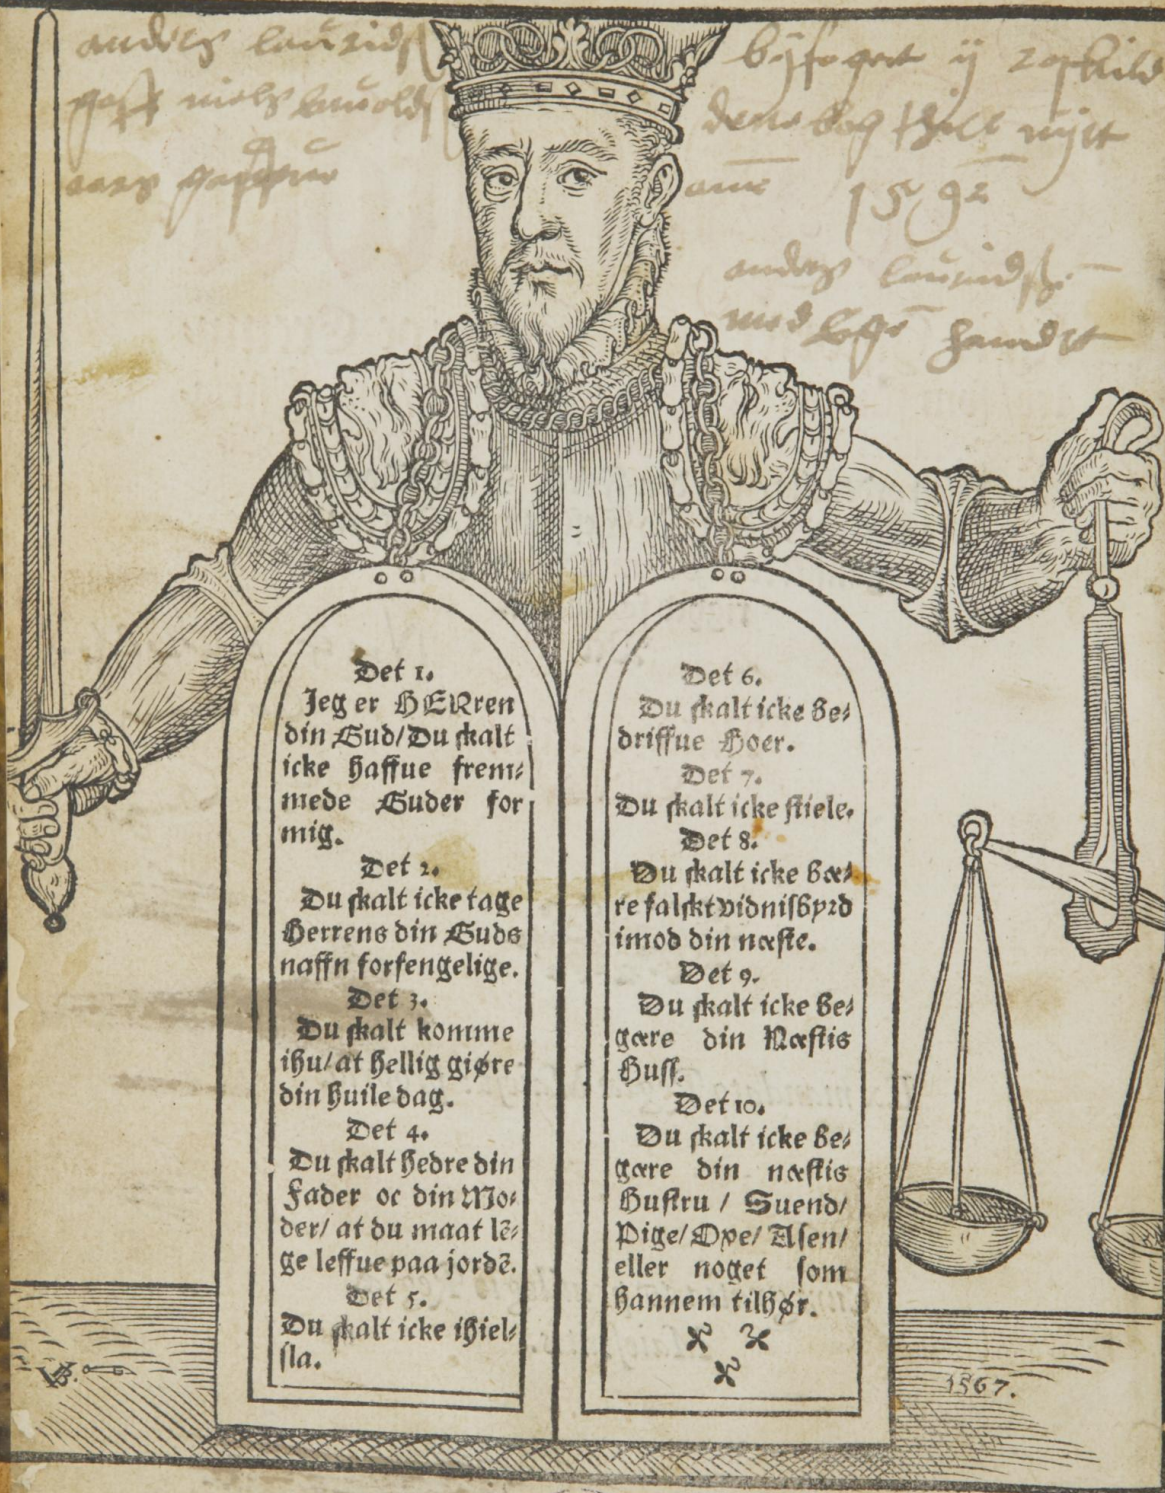 anders lauridss
byfoget y roskild
gaff niels
denne bog thill nytt
aars
anno 1592
anders lauridss
med egen handt
Det 1.
Jeg er HERren
din Gud/Du skalt
icke haffue frem⸗
mede Guder for
mig.
Det 2.
Du skalt icke tage
Herrens din Guds
naffn forfengelige.
Det 3.
Du skalt komme
ihu/at hellig giøre
din huile dag.
Det 4.
Du skalt hedre din
Fader oc din Mo⸗
der/ at du maat lē⸗
ge leffue paa jordē.
Det 5.
Du skalt icke ihiel⸗
sla.
Det 6.
Du skalt icke be⸗
driffue Hoer.
Det 7.
Du skalt icke stiele.
Det 8.
Du skalt icke bæ⸗
re falskt vidnisbyrd
imod din næste.
Det 9.
Du skalt icke be⸗
gære din Næstis
Huss.
Det 10.
Du skalt icke be⸗
gære din næstis
Hustru / Suend/
Pige/ Oxe/ Asen/
eller noget som
hannem tilhør.
1567.